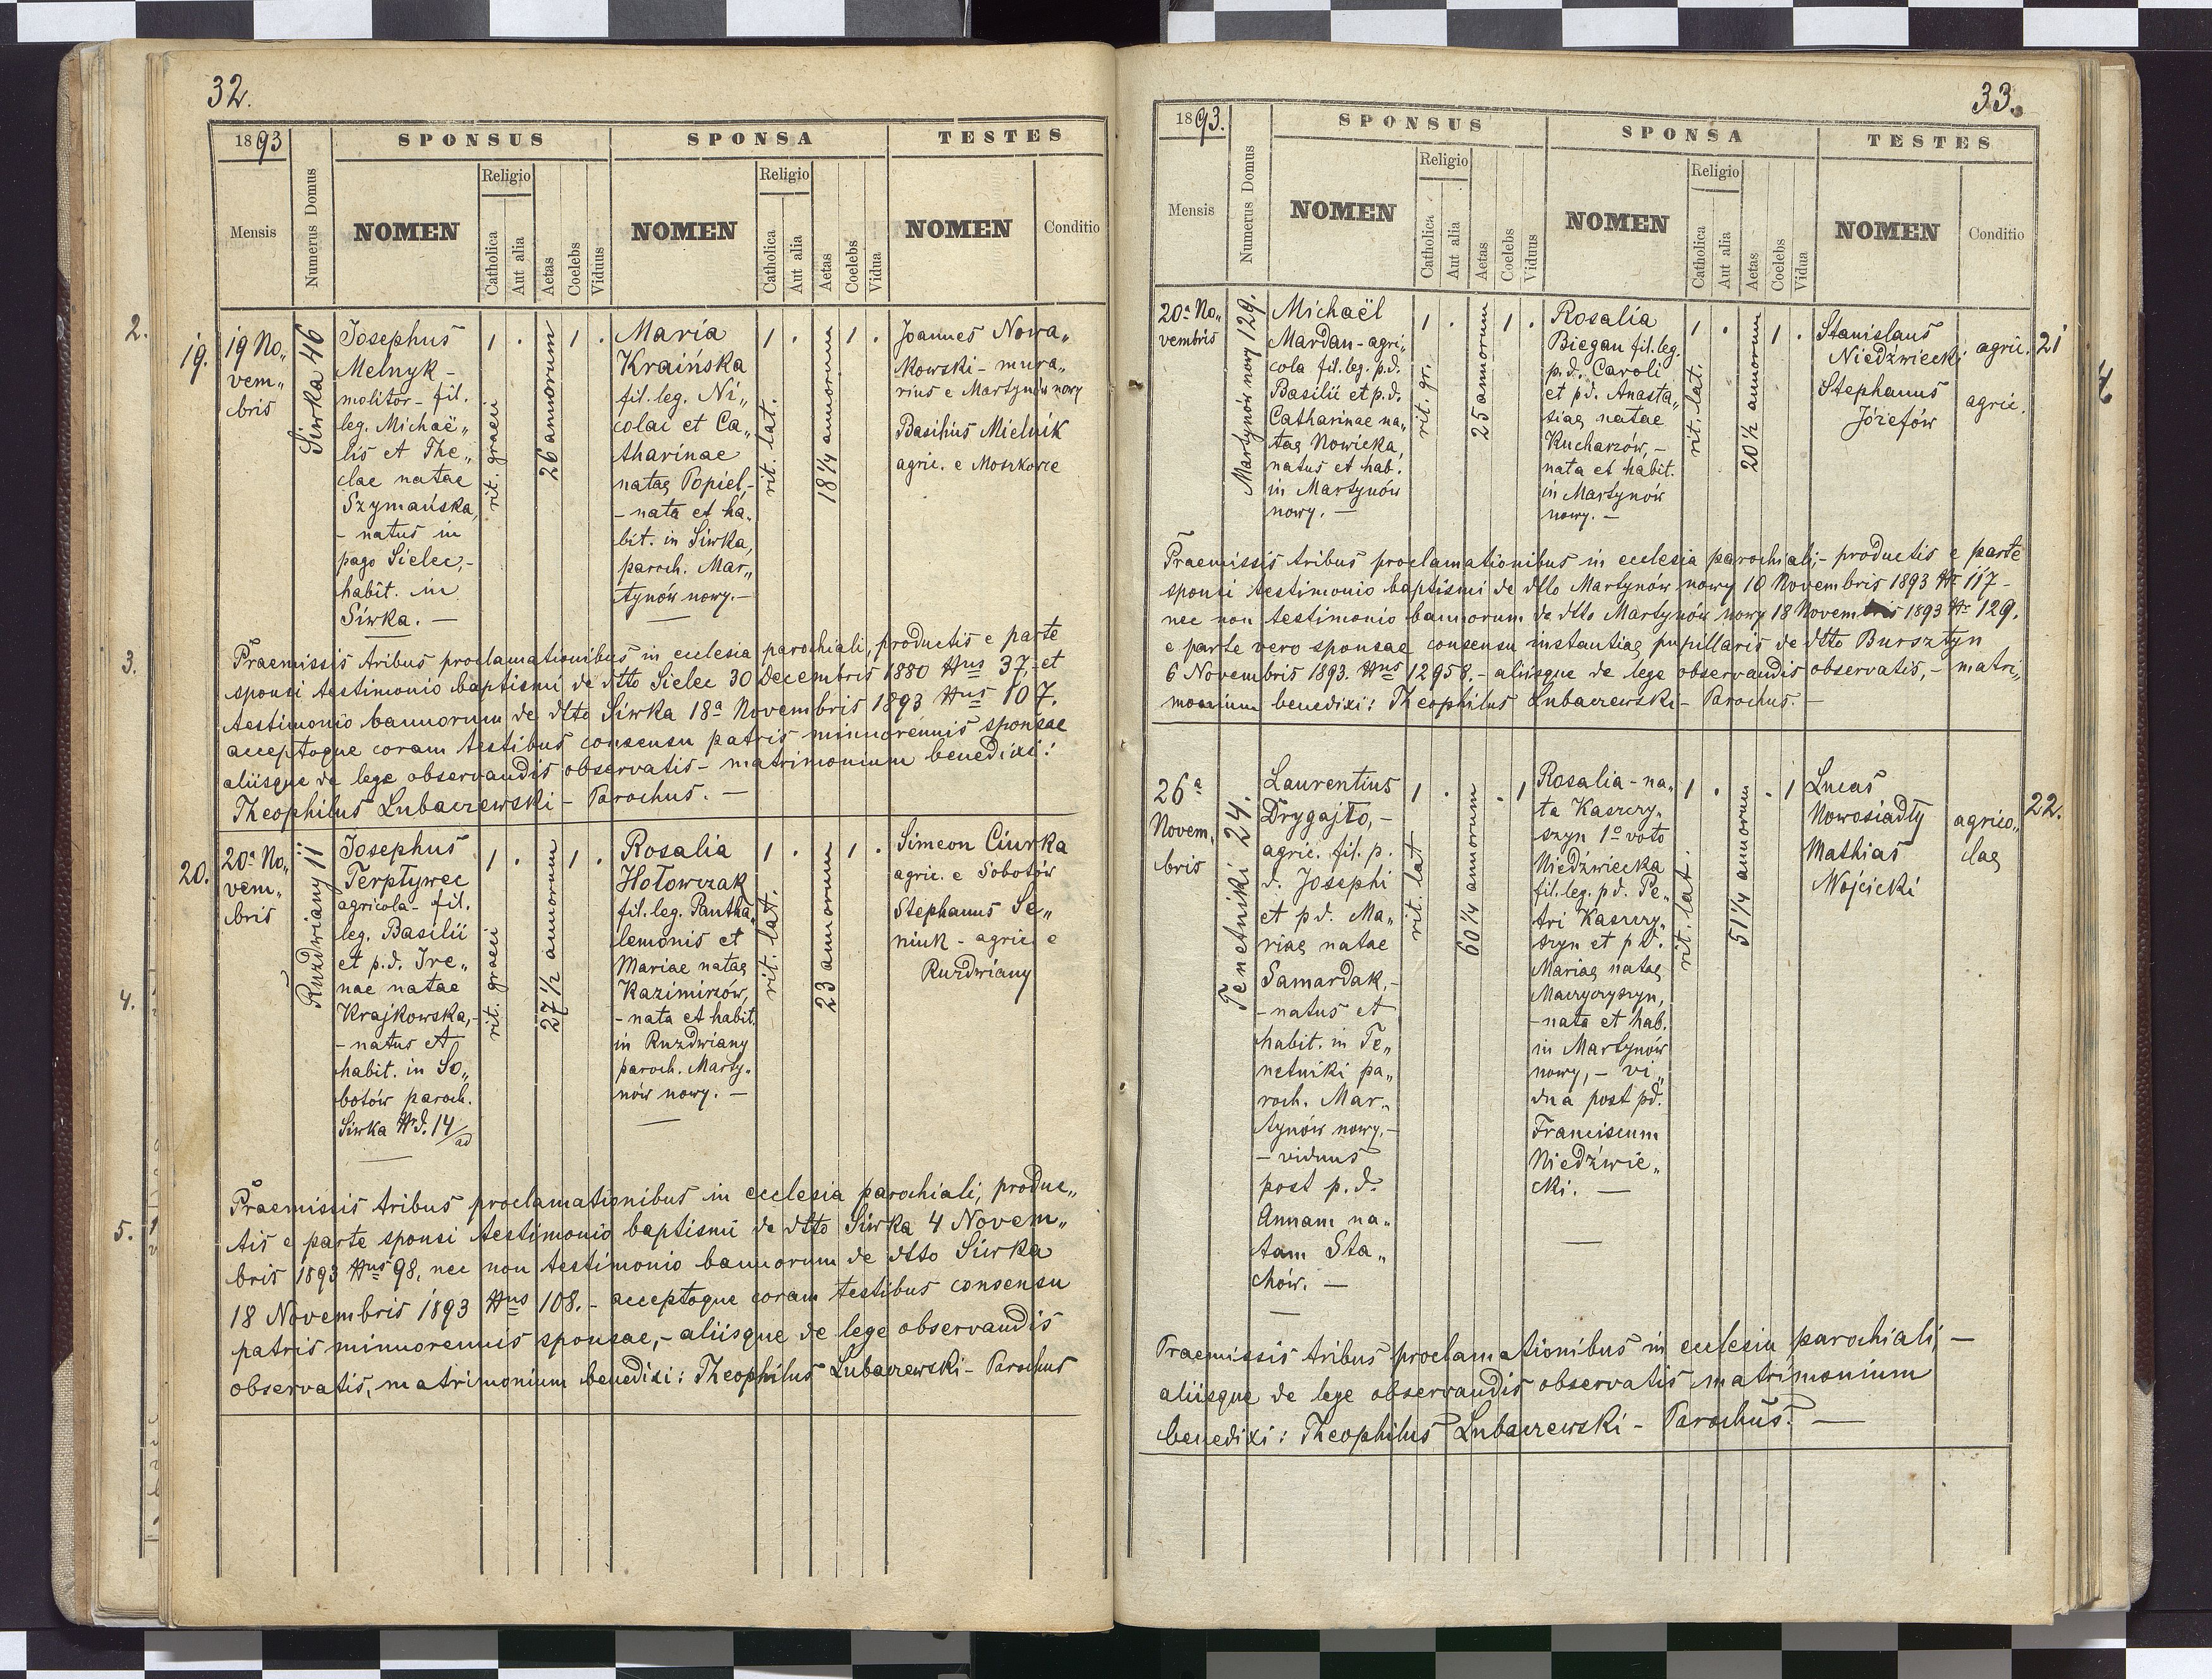 32.
1893
SPONSUS
SPONSA
TESTES
Mensis
Numerus Domus
NOMEN
Religio
Catholica
Aut alia
Aetas
Coelebs
Viduus
NOMEN
Religio
Catholica
Aut alia
Aetas
Coelebs
Vidua
NOMEN
Conditio
2.
3.
4.
5.
19.
19 No„
vem„
bris
Siwka 46
Josephus
Melnyk -
molitor - fil.
leg. Michaë„
lis et The„
clae natae
Szymańska,
- natus in
pago Sielec,-
habit. in
Siwka. —
1 .
rit. graeci
26 annorum
1 .
Maria
Kraińska
fil. leg. Ni„
colai et Ca„
tharinae
natae Popiel,-
- nata et ha„
bit. in Siwka,
paroch. Mar„
tynów nowy.—
1 .
rit. lat.
18 1/4 annorum
1 .
Joannes Nowa„
kowski - mura„
rius e Martynów nowy
Basilius Mielnik
agric. e Moszkowce
Praemissis tribus proclamationibus in ecclesia parochiali, productis e parte
sponsi testimonio baptismi de dtto Sielec 30 Decembris 1880 Nus 37, et
testimonio bannorum de dtto Siwka 18a Novembris 1893 Nus 107.
acceptoque coram testibus consensu patris minorennis sponsae
aliisque de lege observandis observatis - matrimonium benedixi:
Theophilus Lubaczewski - Parochus. —
20.
20a No„
vem„
bris
Ruzdwiany 11
Josephus
Terptywec
agricola - fil.
leg. Basilii
et p.d. Ire„
nae natae
Krajkowska,-
- natus et
habit. in So„
botów paroch.
Siwka Nd. 14/ad
1 .
rit. graeci
27 1/2 annorum
1 .
Rosalia
Hołowczak
fil. leg. Pantha„
lemonis et
Mariae natae
Kazimirzów,
- nata et habit.
in Ruzdwiany
paroch. Marty„
nów nowy. —
1 .
rit. lat.
23 annorum
1 .
Simeon Ciurka
agric. e Sobotów
Stephanus Se„
niuk - agric. e
Ruzdwiany
Praemissis tribus proclamationibus in ecclesia parochiali, produc„
tis e parte sponsi testimonio baptismi de dtto Siwka 4 Novem„
bris 1893 Nus 98, nec non testimonio bannorum de dtto Siwka
18 Novembris 1893 Nus 108. - acceptoque coram testibus consensu
patris minnorennis sponsae,- aliisque de lege observandis
observatis, matrimonium benedixi: Theophilus Lubaczewski - Parochus
33.
1893.
SPONSUS
SPONSA
TESTES
Mensis
Numerus Domus
NOMEN
Religio
Catholica
Aut alia
Aetas
Coelebs
Viduus
NOMEN
Religio
Catholica
Aut alia
Aetas
Coelebs
Vidua
NOMEN
Conditio
20a No„
vembris
Martynów nowy 129.
Michaël
Mardan - agri„
cola fil. leg. p.d.
Basilii et p.d.
Catharinae na„
tae Nowicka,
natus et hab.
in Martynów
nowy. —
1 .
rit. gr.
25 annorum
1 .
Rosalia
Biegan fil. leg.
p.d. Caroli
et pd. Anasta„
siae natae
Kucharzów, -
nata et habit.
in Martynów
nowy. —
1 .
rit. lat.
20 1/2 annorum
1 .
Stanislaus
Niedźwiecki
agric.
Stephanus
Józefów
agric.
21
Praemissis tribus proclamationibus in ecclesia parochiali,- productis e parte
sponsi testimonio baptismi de dtto Martynów nowy 10 Novembris 1893 Nr 117 -
nec non testimonio bannorum de dtto Martynów nowy 18 Novembris 1893 Nr 129.
e parte vero sponsae consensu instantiae pupillaris de dtto Bursztyn
6 Novembris 1893. Nus 12958,- aliisque de lege observandis observatis, - matri„
monium benedixi: Theophilus Lubaczewski - Parochus. —
26a
Novem„
bris
Tenetniki 24.
Laurentius
Drygajło, -
agric. fil. p.
d. Josephi
et p d. Ma„
riae natae
Samardak, -
- natus et
habit. in Te„
netniki pa„
roch. Mar„
tynów nowy,-
- viduus
post p.d.
Annam na„
tam Sta„
chów. —
1 .
rit. lat
60 1/4 annorum
. 1
Rosalia - na„
ta Kaszczy„
szyn 1o voto
Niedźwiecka
fil. leg. pd. Pe„
tri Kaszczy„
szyn et pd.
Mariae natae
Maczyczyszyn,
- nata et hab.
in Martynów
nowy, - vi„
dua post pd.
Franciscum
Niedźwie„
cki. —
1 .
rit. lat.
51 1/4 annorum
. 1
Lucas
Nowosiadły
Mathias
Wojcicki
agrico„
lae
22.
Praemissis tribus proclamationibus in ecclesia parochiali, —
aliisque de lege observandis observatis matrimonium
benedixi: Theophilus Lubaczewski - Parochus. —